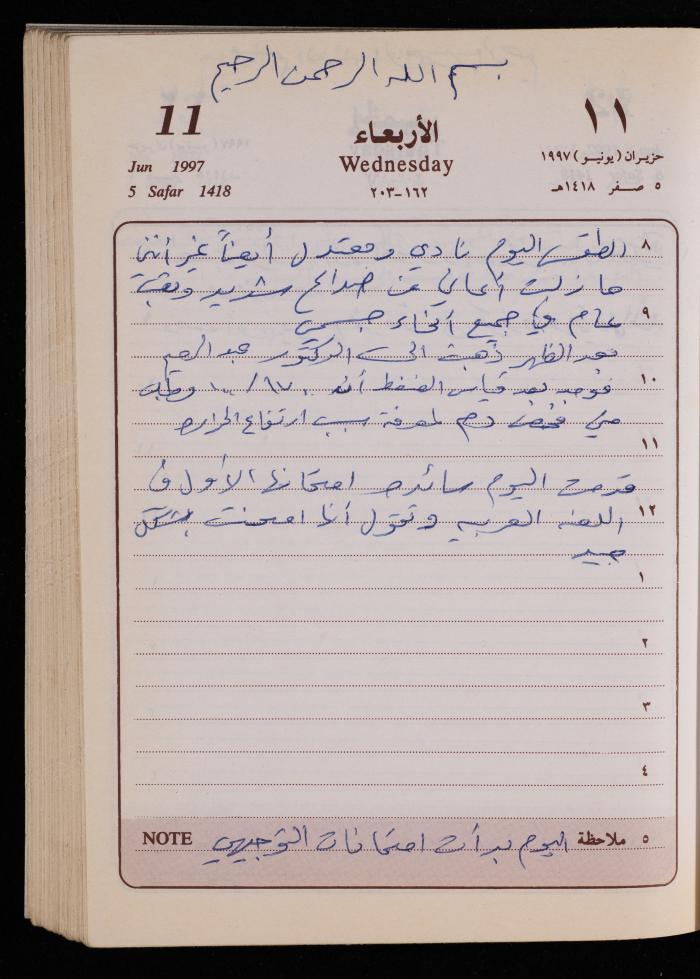 بسم الله الرحمن الرحيم
11
Jun 1997
5 Safar 1418
الأربعاء
Wednesday
١٦٢-٢٠٣
١١
حزيران (يونيو) ١٩٩٧
٥ صفر ١٤١٨هـ
٨ الطقس اليوم نادي ومعتدل أيضاً غير أنني
ما زلت أعاني من صداع شديد وتعب
٩ عام في جميع أنحاء جسمي
بعد الظهر ذهبت الى الدكتور عبد الرحيم
١٠ فوجد بعد قياس الضغط أنه ١٠٠/١٧٠ وطلب
مني فحص دم لمعرفة سبب ارتفاع الحرارة
١١
قدمت اليوم سائدة امتحانها الأول في
١٢ اللغة العربية وتقول أنها امتحنت بشكل
جيد
١
٢
٣
٤
٥ ملاحظة اليوم بدأت امتحانات التوجيهي NOTE